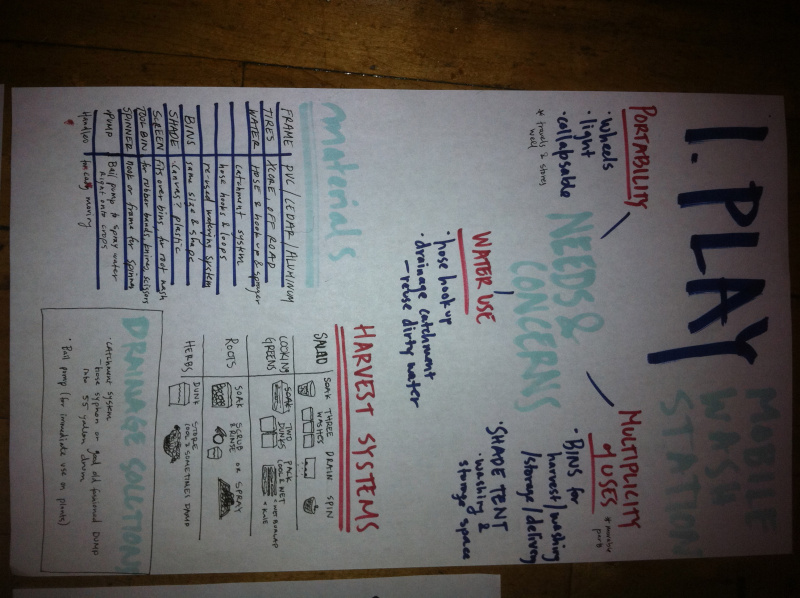 1. PLAY
MOBILE
WASH
STATION
PORTABILITY
• wheels
• light
• collapsable
* travels & stores
well
NEEDS &
CONCERNS
WATER USE
• hose hook up
• drainage catchment
- reuse dirty water
MULTIPLICITY
of USES
parts
• BINS for
harvest/washing
/storage/delivery
• SHADE TENT
• washing &
storage space
materials
FRAME | PVC / CEDAR / ALUMINUM
TIRES | XCORE OFF ROAD
WATER | HOSE & hook up & sprayer
catchment system
hose hooks & loops
re-used watering system
BINS | same size & shape
SHADE | canvas, plastic
SCREEN | fits over bins, for root wash
TOOL BIN | for rubber bands, knives, scissors
SPINNER | hook or frame for spinning
PUMP | Ball pump to spray water
right onto crops
Handles | for easy moving
HARVEST SYSTEMS
SALAD | SOAK THREE DRAIN SPIN
WASHES
COOKING | SOAK TWO PACK
GREENS DUNKS COOL & WET
ROOTS | SOAK SCRUB OR SPRAY
& RINSE
HERBS | DUNK STORE
COOL & SOMETIMES DAMP
DRAINAGE SOLUTIONS
• CATCHMENT SYSTEM
- hose syphon or good old fashioned DUMP
into 55 gallon drum
• Ball pump (for immediate use on plants)